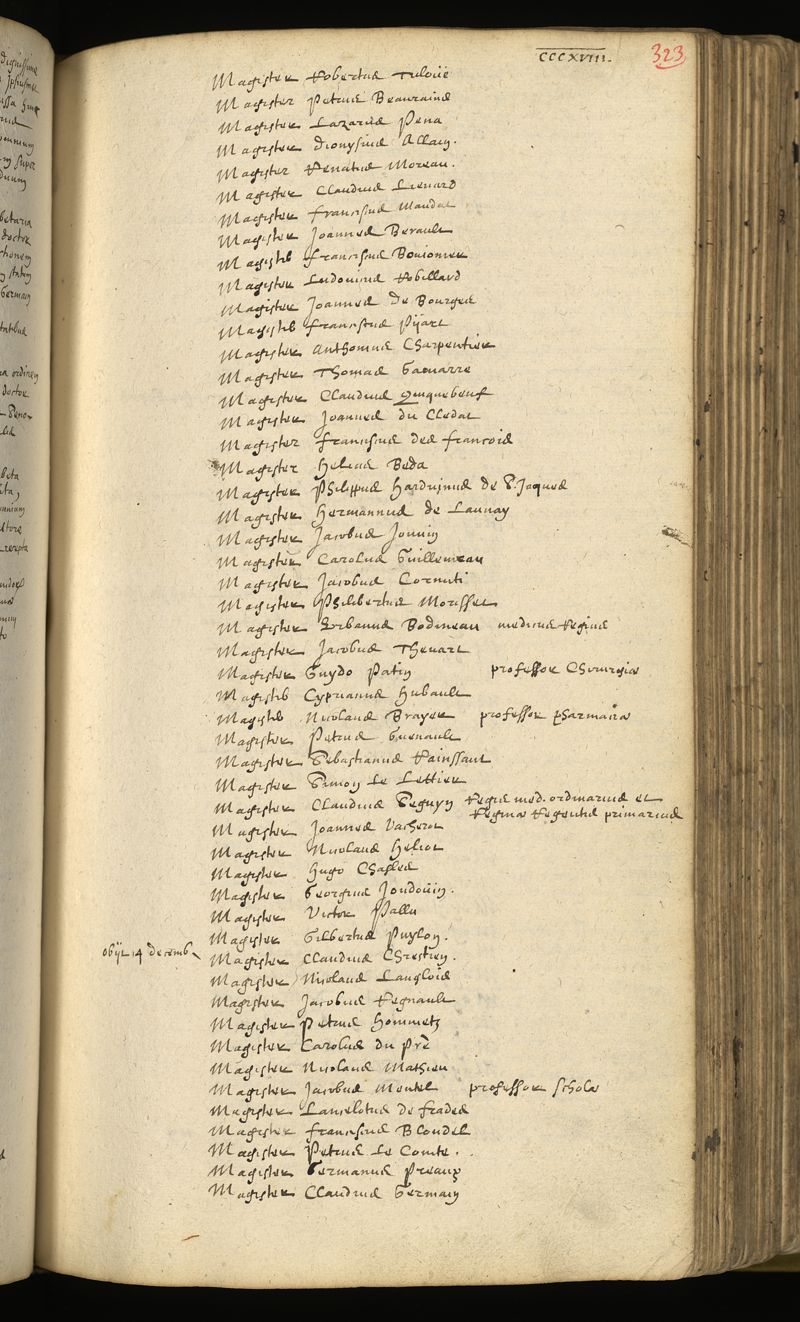 CCCXVIII.
323
Magister Robertus Tulloüe
Magister Petrus Beaurains
Magister Lazarus Pena
Magister Dionysius Allain.
Magister Renatus Moreau.
Magister Claudius Lienard
Magister franciscus Mandat
Magister Joannes Berault
Magister franciscus Boujonier
Magister Ludovicus Robillard
Magister Joannes de Bourges
Magister franciscus Pijart
Magister Anthonius Charpentier
Magister Thomas Gamarre
Magister Claudius Quiquebeuf
Magister Joannes du Cledat
Magister franciscus des francois
Magister Helias Beda
Magister Philippus Harduinus de S. Jaques
Magister Hermannus de Launay
Magister Jacobus Jouvin
Magister Carolus Guillemeau
Magister Jacobus Cornuti
Magister Philibertus Morisset
Magister Urbanus Bodineau medicus Regius
Magister Jacobus Thevart
Magister Guydo Patin professor Chirurgiæ
Magister Cyprianus Hubault
Magister Nicolaus Brayer professor pharmaciæ
Magister Petrus Guenault
Magister Sebastianus Rainssant
Magister Simon Le Lettier
Magister Claudius Seguyn Regis med. ordinarius et
Reginæ Regentis primarius
Magister Joannes Vacherot
Magister Nicolaus Heliot
Magister Hugo Chasles
Magister Georgius Joudouin.
Magister Victor Pallu
Magister Gilbertus Puylon.
obijt 14 decemb. Magister Claudius Chrestien.
Magister Nicolaus Langlois
Magister Jacobus Regnault
Magister Petrus Hommetz
Magister Carolus du Pré
Magister Nicolaus Mathieu
Magister Jacobus Mentel professor scholæ
Magister Lancelotus de frades
Magister franciscus Blondel
Magister Petrus Le Comte.
Magister Germanus Preaux
Magister Claudius Germain